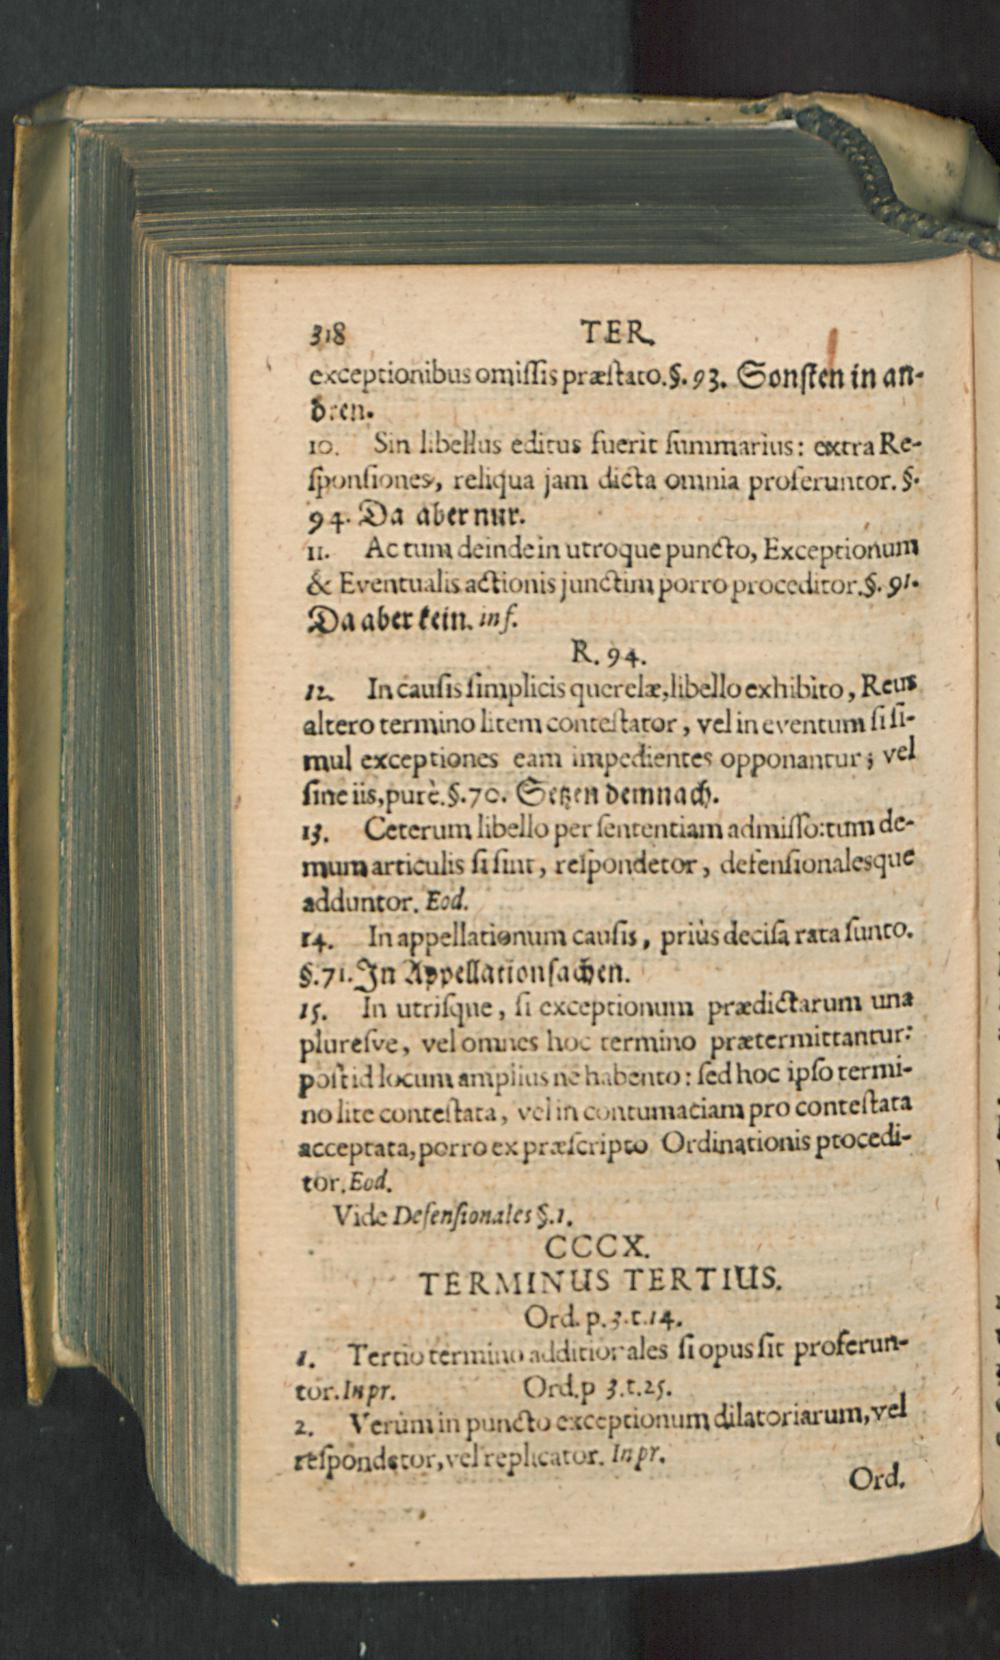 318 TER.
exceptionibus omiſſis præſtato. §. 93. Sonſten in an-
dren.
10. Sin libellus editus fuerit ſummarius: extra Re-
ſponſiones, reliqua jam dicta omnia proferuntor. §.
94. Da aber nur.
11. Ac tum deinde in utroque puncto, Exceptionum
& Eventualis actionis junctim porro proceditor. §. 91.
Da aber kein. inf.
R. 94.
12. In cauſis ſimplicis querelæ, libello exhibito, Reus
altero termino litem conteſtator, vel in eventum ſi ſi-
mul exceptiones eam impedientes opponantur; vel
ſine iis, purè. §. 70. Setzen demnach.
13. Ceterum libello per ſententiam admiſſo: tum de-
mum articulis ſi ſint, reſpondetor, defenſionalesque
adduntor. Eod.
14. In appellationum cauſis, priùs deciſa rata ſunto.
§. 71. In Appellation ſachen.
15. In utriſque, ſi exceptionum prædictarum una
plureſve, vel omnes hoc termino prætermittantur:
poſt id locum amplius ne habento: ſed hoc ipſo termi-
no lite conteſtata, vel in contumaciam pro conteſtata
acceptata, porro ex præſcripto Ordinationis procedi-
tor. Eod.
Vide Defenſionales §. 1.
CCCX.
TERMINUS TERTIUS.
Ord. p. 3. t. 14.
1. Tertio termino additionales ſi opus ſit proferun-
tor. In pr. Ord. p 3. t. 25.
2. Verùm in puncto exceptionum dilatoriarum, vel
reſpondetor, vel replicator. In pr.
Ord.